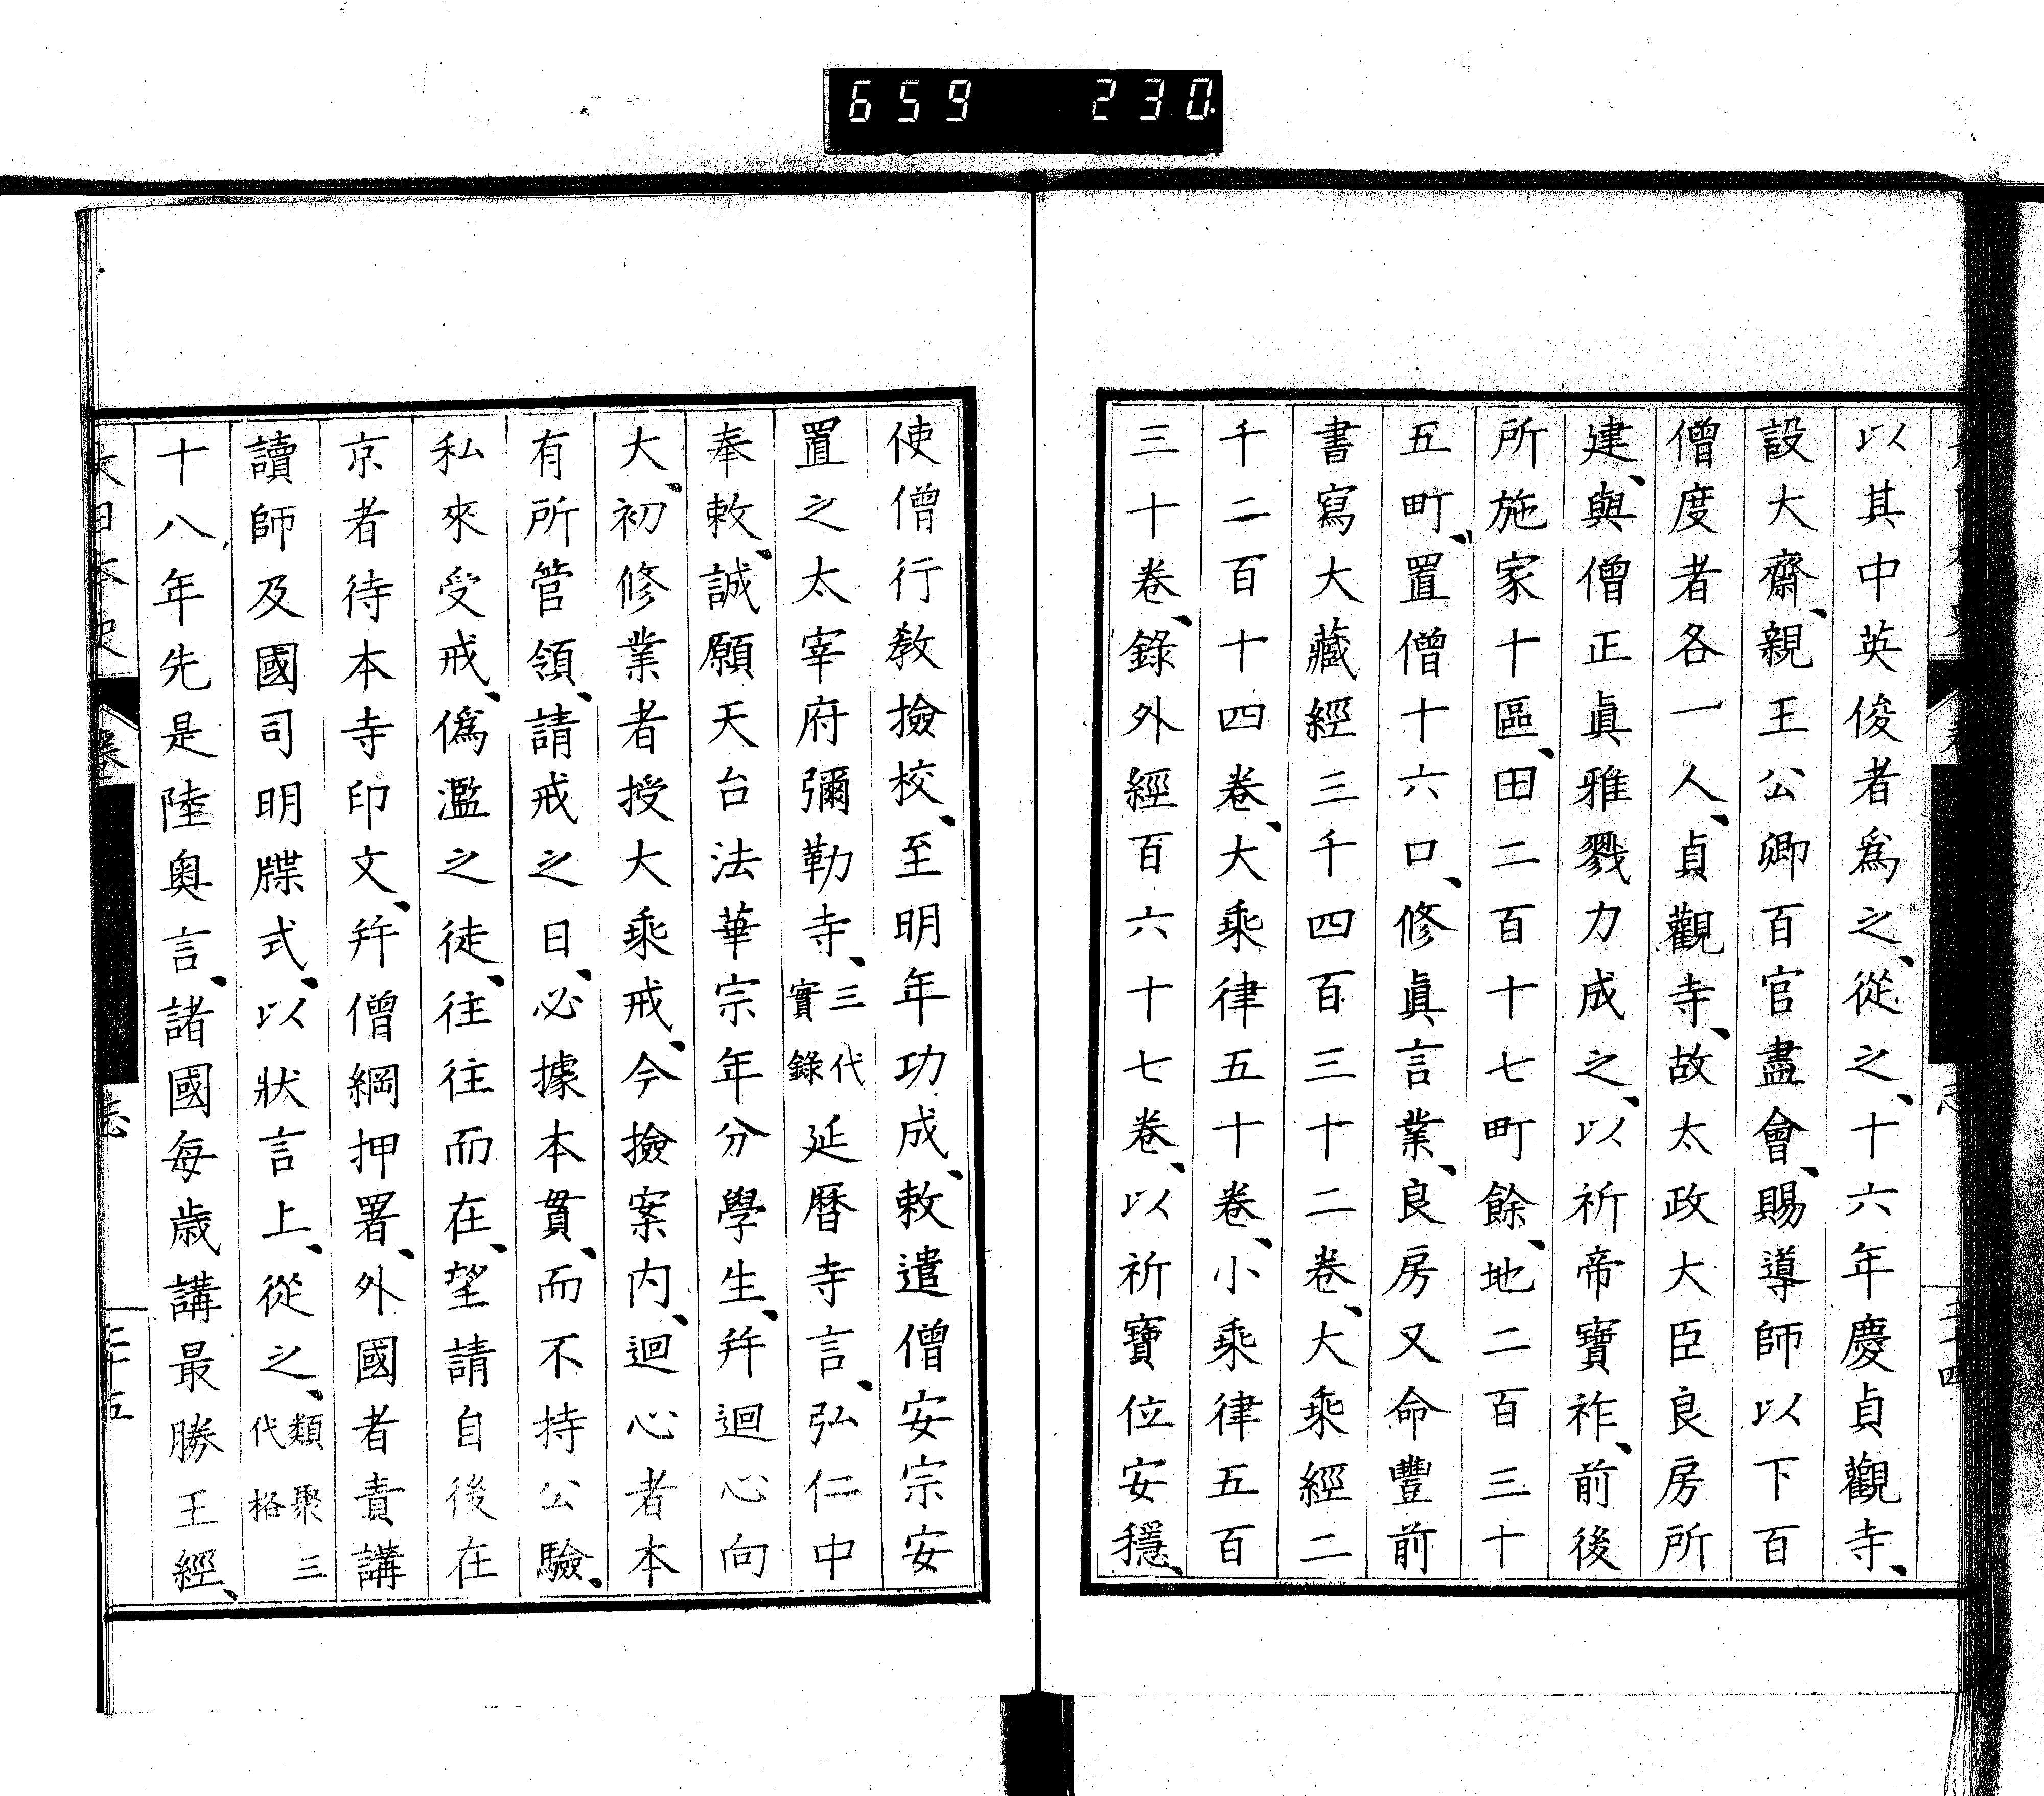 659 230
以其中英俊者爲之、從之、十六年慶貞觀寺、
設大齋、親王公卿百官盡會、賜導師以下百
僧度者各一人、貞觀寺、故太政大臣良房所
建、與僧正眞雅戮力成之、以祈帝寶祚、前後
所施家十區、田二百十七町餘、地二百三十
五町、置僧十六口、修眞言業、良房又命豐前
書寫大藏經三千四百三十二卷、大乘經二
千二百十四卷、大乘律五十卷、小乘律五百
三十卷、錄外經百六十七卷、以祈寶位安穩、
使僧行教撿校、至明年功成、敕遣僧安宗安
置之太宰府彌勒寺、三代實錄延曆寺言、弘仁中
奉敕、誠願天台法華宗年分學生、幷迴心向
大、初修業者授大乘戒、今撿案内、迴心者本
有所管領、請戒之日、必據本貫、而不持公驗、
私來受戒、僞濫之徒、往往而在、望請自後在
京者待本寺印文、幷僧綱押署、外國者責講
讀師及國司明牒式、以狀言上、從之、類聚三代格
十八年先是陸奥言、諸國每歲講最勝王經、
大日本史 卷 志 三十五